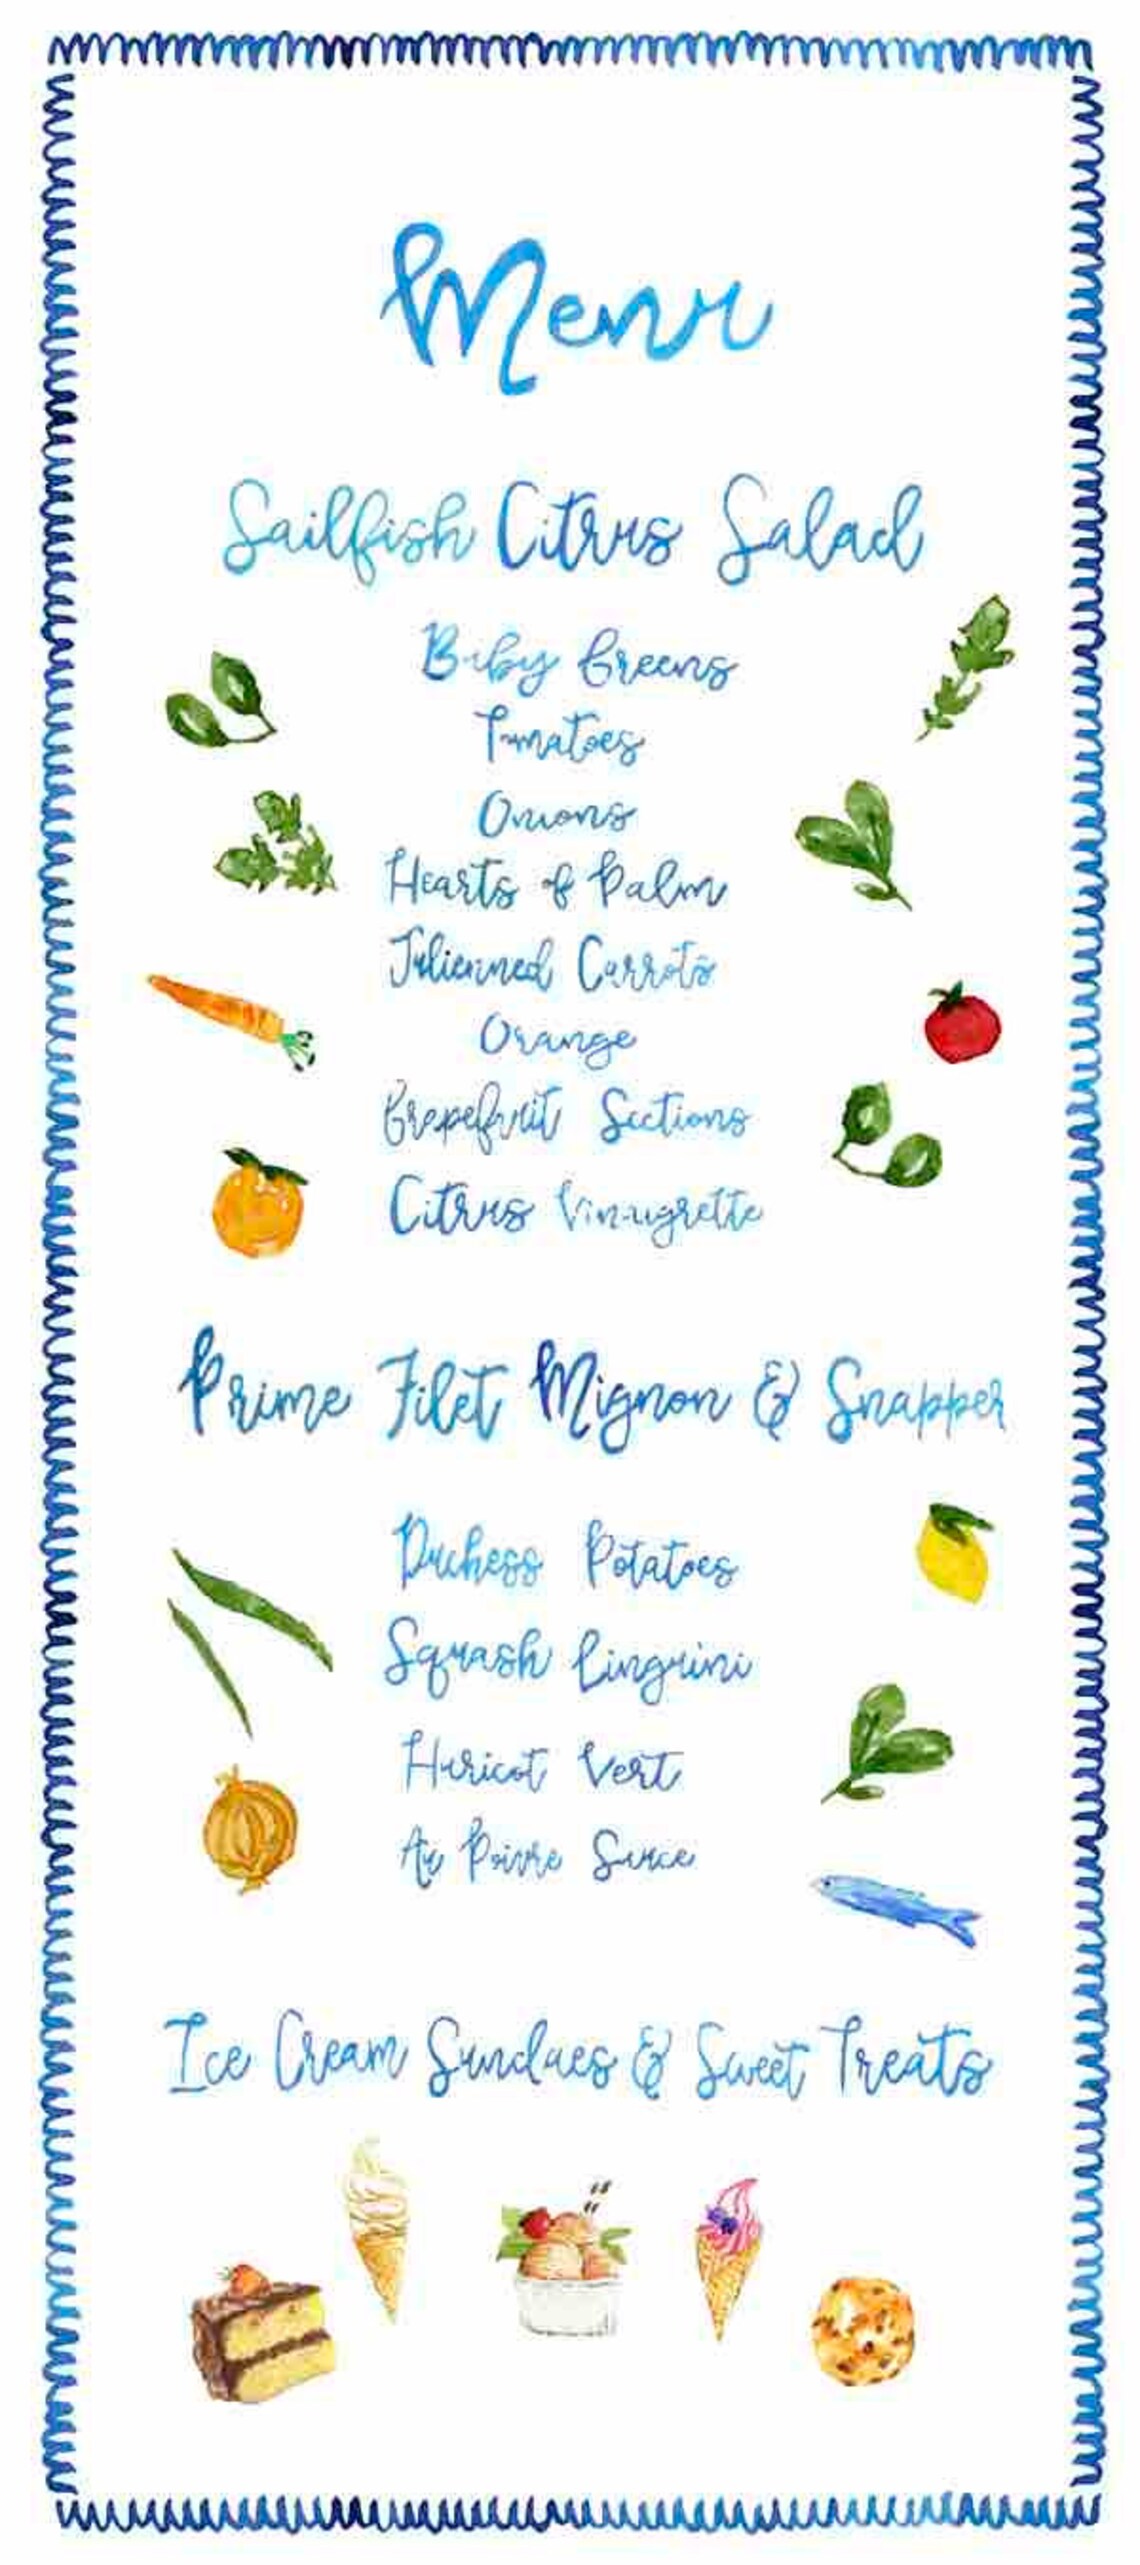 Menu
Sailfish Citrus Salad
Baby Greens
Tomatoes
Onions
Hearts of Palm
Julienned Carrots
Orange
Grapefruit Sections
Citrus Vinaigrette
Prime Filet Mignon & Snapper
Duchess Potatoes
Squash Linguini
Haricot Vert
Au Poivre Sauce
Ice Cream Sundaes & Sweet Treats